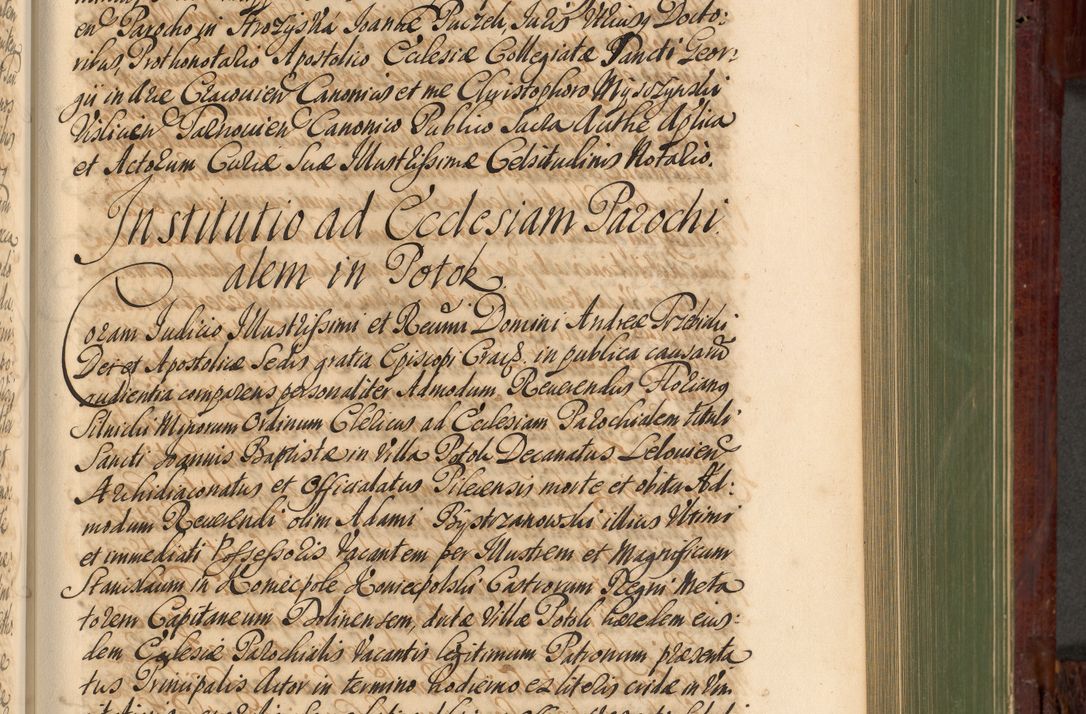 en Parocho in Strozyska Joanne Paczek, Juris Utriusq Docto-
ribus, Prothonotario Apostolico Ecclesiæ Collegiatæ Sancti Geor-
gii in Arce Cracovien Canonicis et me Christophoro Myszzynski
Vislicien Tarnovien Canonico Publico Sacra Authe Aplica
et Actorum Curiæ Suæ Illustrissimæ Celsitudinis Notario.
Institutio ad Ecclesiam Parochi.
alem in Potok
Coram Judicio Illustrissimi et Reumi Domini Andreæ Trzebicki
Dei et Apostolicæ Sedis gratia Episcopi Crac, in publica causarũ
audientia comparens personaliter Admodum Reverendus Florianq
Minorum Ordinum Clericus ad Ecclesiam Parochialem tituli
Sancti Joannis Baptistæ in Villa Potok Decanatus Lelovien
Archidiaconatus et Officialatus Pilcensis morte et obitu Ad:
modum Reverendi olim Adami Bÿstrzanowski illius Ultimi
et immediati Possessoris Vacantem per Illustrem et Magnificum
Stanislaum in Koniecpole Koniecpolski Castrorum Regni Meta
torem Capitaneum Dolinensem, dictæ Villæ Potok hæredem eius-
dem Ecclesiæ Parochialis Vacantis legitimum Patronum præsenta
tus Principalis Actor in termino hodierno ex literis cridæ in Vim